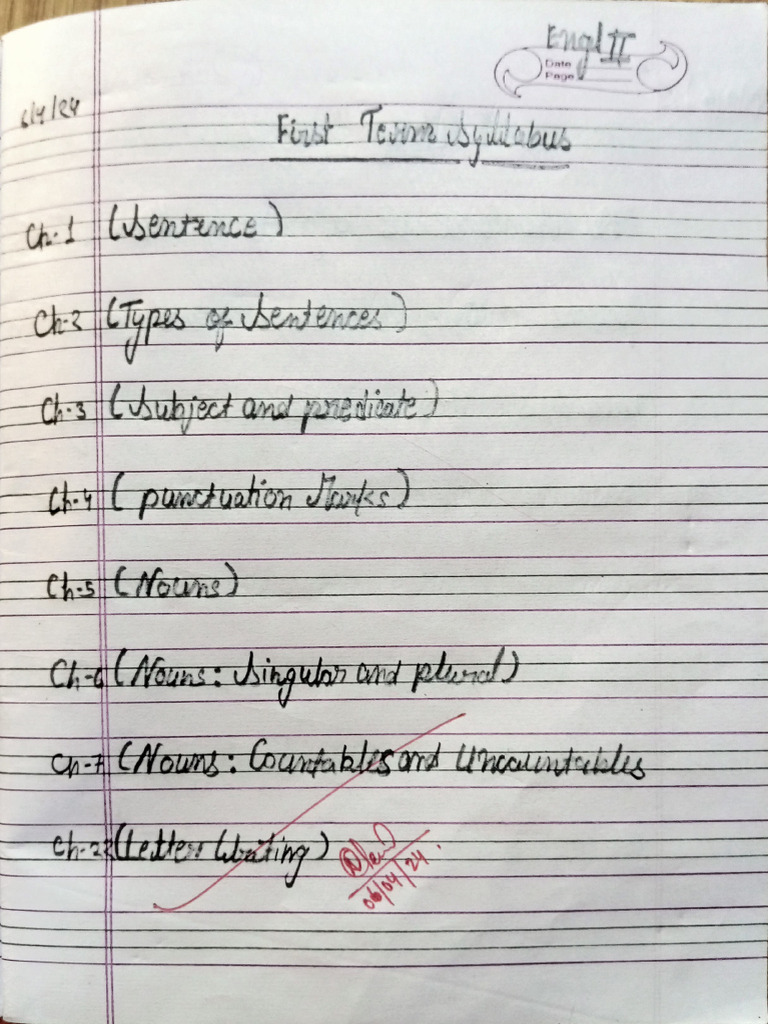 Engl II
Date
Page
6/4/24
First Term Syllabus
Ch-1 (Sentence)
Ch-2 (Types of Sentences)
Ch-3 (Subject and predicate)
Ch-4 (punctuation Marks)
Ch-5 (Nouns)
Ch-6 (Nouns: Singular and plural)
Ch-7 (Nouns: Countables and Uncountables
Ch-22 (Letter Writing)
06/04/24.